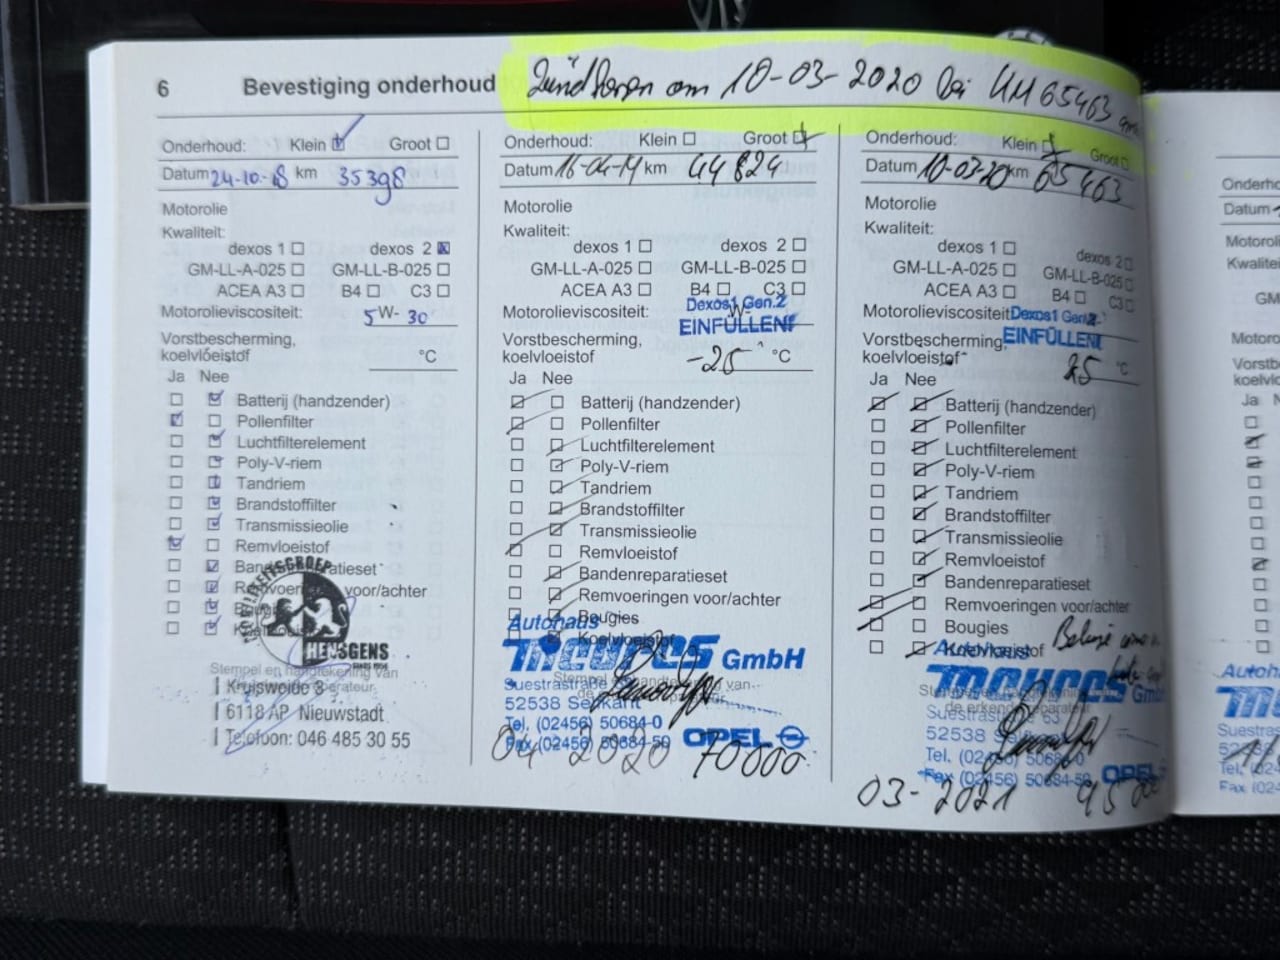 6 Bevestiging onderhoud
am 10-03-2020 bei KM 65463
Onderhoud: Klein Groot
Datum 24-10-18 km 35398
Motorolie
Kwaliteit:
dexos 1 dexos 2
GM-LL-A-025 GM-LL-B-025
ACEA A3 B4 C3
Motorolieviscositeit: 5 W- 30
Vorstbescherming,
koelvloeistof °C
Ja Nee
Batterij (handzender)
Pollenfilter
Luchtfilterelement
Poly-V-riem
Tandriem
Brandstoffilter
Transmissieolie
Remvloeistof
Bandenreparatieset
Remvoeringen voor/achter
Bougies
Koelvloeistof
HENSGENS
Stempel en handtekening van
Kruisweide 3
6118 AP Nieuwstadt
Telefoon: 046 485 30 55
Onderhoud: Klein Groot
Datum 16-04-19 km 44824
Motorolie
Kwaliteit:
dexos 1 dexos 2
GM-LL-A-025 GM-LL-B-025
ACEA A3 B4 C3
Dexos1 Gen.2
Motorolieviscositeit: W-
EINFÜLLEN!
Vorstbescherming,
koelvloeistof -25 °C
Ja Nee
Batterij (handzender)
Pollenfilter
Luchtfilterelement
Poly-V-riem
Tandriem
Brandstoffilter
Transmissieolie
Remvloeistof
Bandenreparatieset
Remvoeringen voor/achter
Bougies
Koelvloeistof
Autohaus
GmbH
Suestrastraße
52538 Selfkant
Tel. (02456) 50684-0
Fax (02456) 50684-59 OPEL
04 2020 70000
Onderhoud: Klein Groot
Datum 10-03-20 km 65463
Motorolie
Kwaliteit:
dexos 1 dexos 2
GM-LL-A-025 GM-LL-B-025
ACEA A3 B4 C3
Motorolieviscositeit Dexos1 Gen.2
EINFÜLLEN!
Vorstbescherming,
koelvloeistof 25 °C
Ja Nee
Batterij (handzender)
Pollenfilter
Luchtfilterelement
Poly-V-riem
Tandriem
Brandstoffilter
Transmissieolie
Remvloeistof
Bandenreparatieset
Remvoeringen voor/achter
Bougies
Koelvloeistof
Autohaus
GmbH
Suestrastraße 63
52538
Tel. (02456) 50684-0
Fax (02456) 50684-59 OPEL
03-2021
Onderho
Datum
Motoroli
Kwaliteit
GM
Motoro
Vorstb
koelvlo
Ja N
Autoha
Suestras
Tel. (024
Fax (024